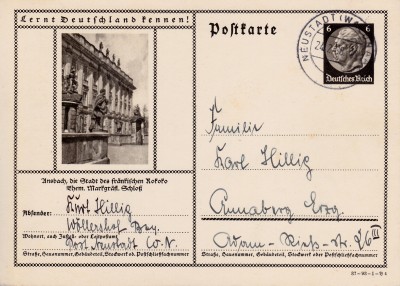 Lernt Deutschland kennen!
Postkarte
NEUSTADT (W
6 6
Deutsches Reich
Familie
Karl Hillig
Annaberg Erzg.
Adam-Rieß-Str. 26 III
Ansbach, die Stadt des fränkischen Rokoko
Ehem. Markgräfl. Schloß
Absender: Kurt Hillig
Wöllershof Bay.
Wohnort, auch Zustell- oder Leitpostamt
Post Neustadt W.N.
Straße, Hausnummer, Gebäudeteil, Stockwerk oder Postschließfachnummer
Straße, Hausnummer, Gebäudeteil, Stockwerk oder Postschließfachnummer